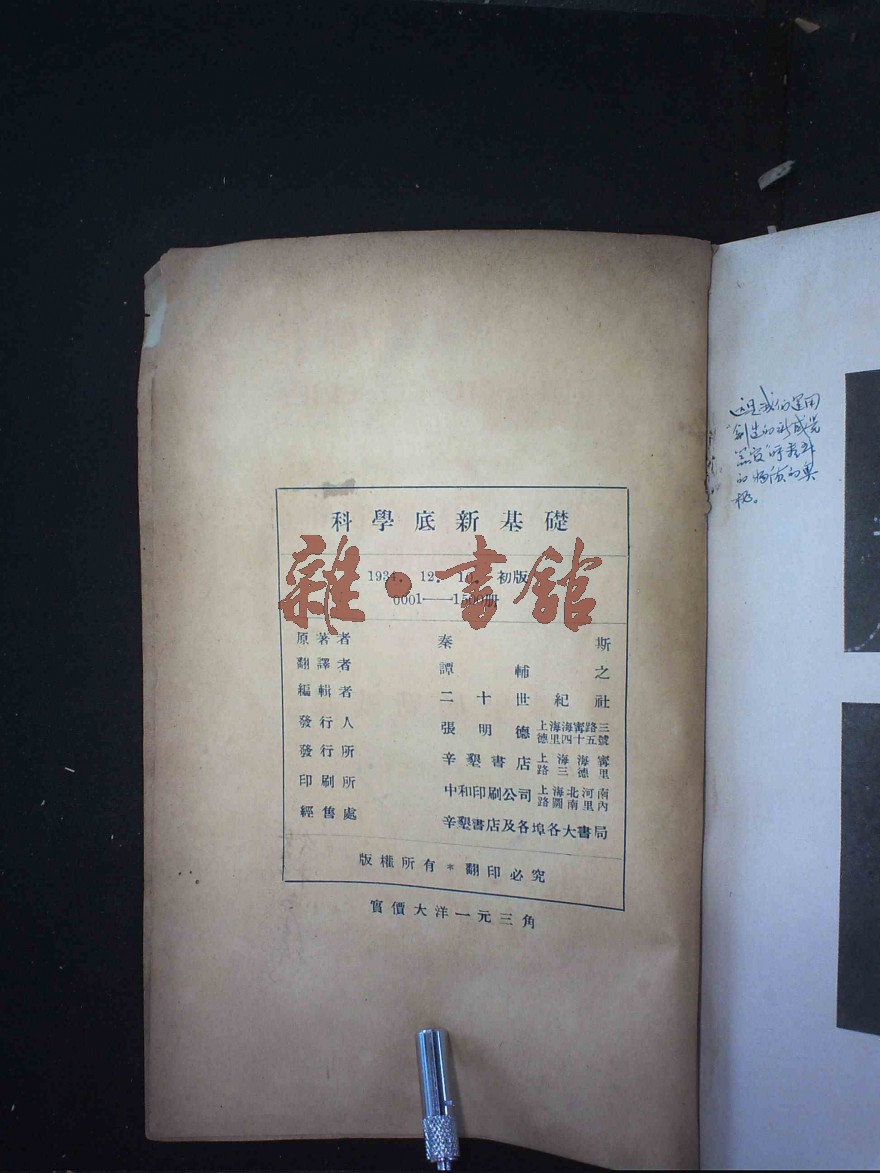 科學底新基礎
1934. 12. 10. 初版
0001——1500册
雜·書館
原著者 秦斯
翻譯者 譚輔之
編輯者 二十世紀社
發行人 張明德 上海海甯路三德里四十五號
發行所 辛墾書店 上海海甯路三德里
印刷所 中和印刷公司 上海北河南路圖南里內
經售處 辛墾書店及各埠各大書局
版權所有 * 翻印必究
實價大洋一元三角
这是我们运用
"創造的
的物质的奥
秘。